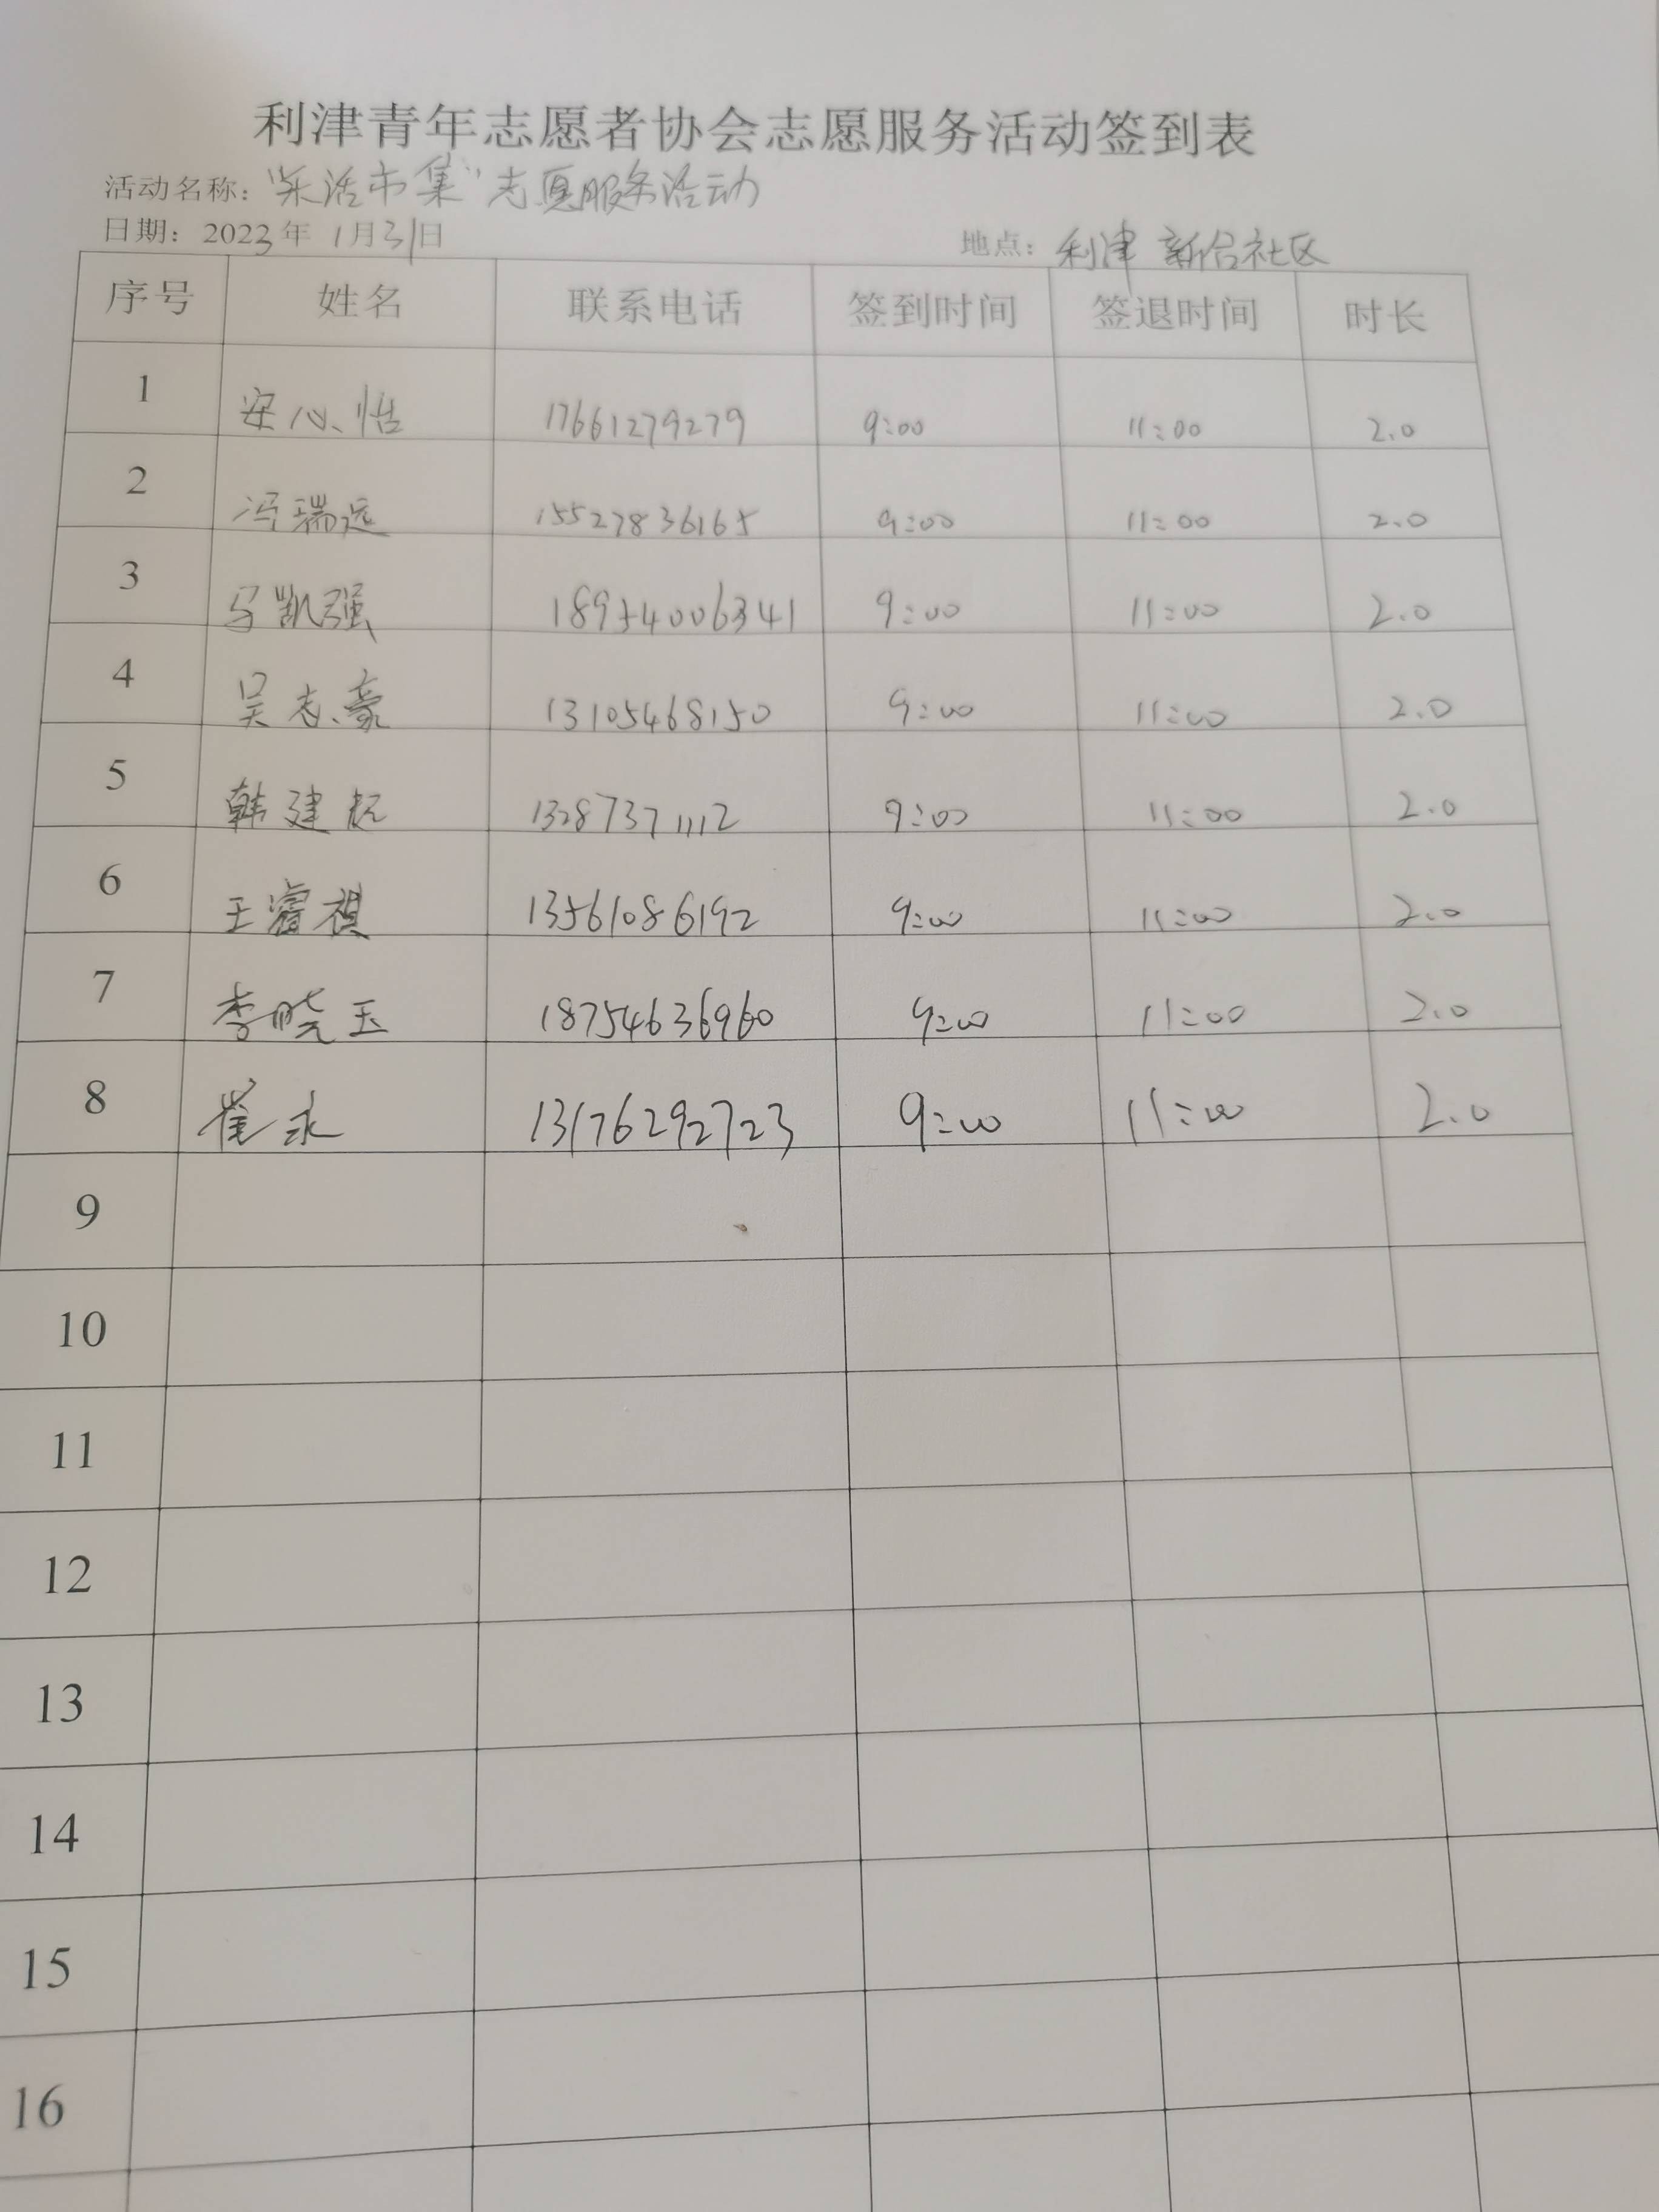 利津青年志愿者协会志愿服务活动签到表
活动名称："乐活市集"志愿服务活动
日期：2023年 1月31日 地点：利津 新合社区
序号 姓名 联系电话 签到时间 签退时间 时长
1 安心怡 17661279279 9:00 11:00 2.0
2 冯瑞远 15527836165 9:00 11:00 2.0
3 马凯强 18954006341 9:00 11:00 2.0
4 吴志豪 13105468150 9:00 11:00 2.0
5 韩建 13287371112 9:00 11:00 2.0
6 王睿祺 13561086192 9:00 11:00 2.0
7 李晓玉 18754636960 9:00 11:00 2.0
8 崔永 13176292723 9:00 11:00 2.0
9
10
11
12
13
14
15
16